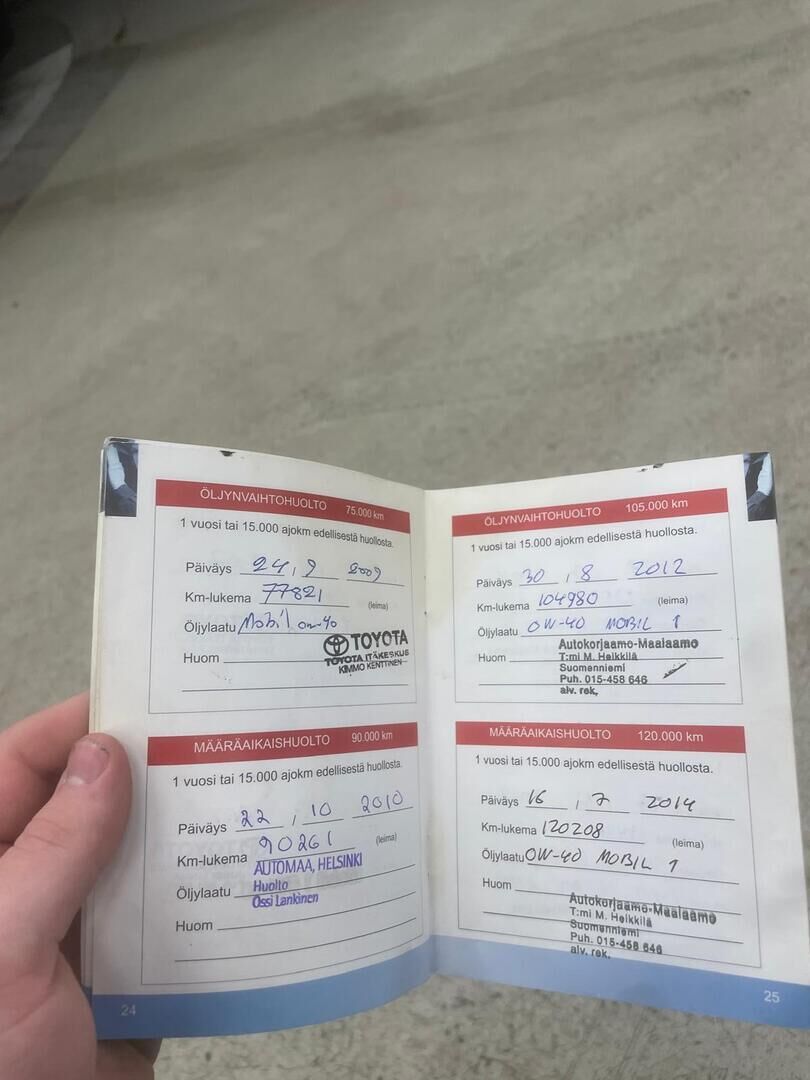 ÖLJYNVAIHTOHUOLTO 75.000 km
1 vuosi tai 15.000 ajokm edellisestä huollosta.
Päiväys 24, 9 2009
Km-lukema 77821
(leima)
Öljylaatu Mobil 0w-40
Huom
TOYOTA
TOYOTA ITÄKESKUS
KIMMO KENTTINEN
MÄÄRÄAIKAISHUOLTO 90.000 km
1 vuosi tai 15.000 ajokm edellisestä huollosta.
Päiväys 22, 10 2010
Km-lukema 90261
(leima)
AUTOMAA, HELSINKI
Öljylaatu Huolto
Ossi Lankinen
Huom
24
ÖLJYNVAIHTOHUOLTO 105.000 km
1 vuosi tai 15.000 ajokm edellisestä huollosta.
Päiväys 30, 8 2012
Km-lukema 104980 (leima)
Öljylaatu 0W-40 MOBIL 1
Huom
Autokorjaamo-Maalaamo
T:mi M. Heikkilä
Suomenniemi
Puh. 015-458 646
alv. rek.
MÄÄRÄAIKAISHUOLTO 120.000 km
1 vuosi tai 15.000 ajokm edellisestä huollosta.
Päiväys 16, 7 2014
Km-lukema 120208 (leima)
Öljylaatu 0W-40 MOBIL 1
Huom
Autokorjaamo-Maalaamo
T:mi M. Heikkilä
Suomenniemi
Puh. 015-458 646
alv. rek.
25